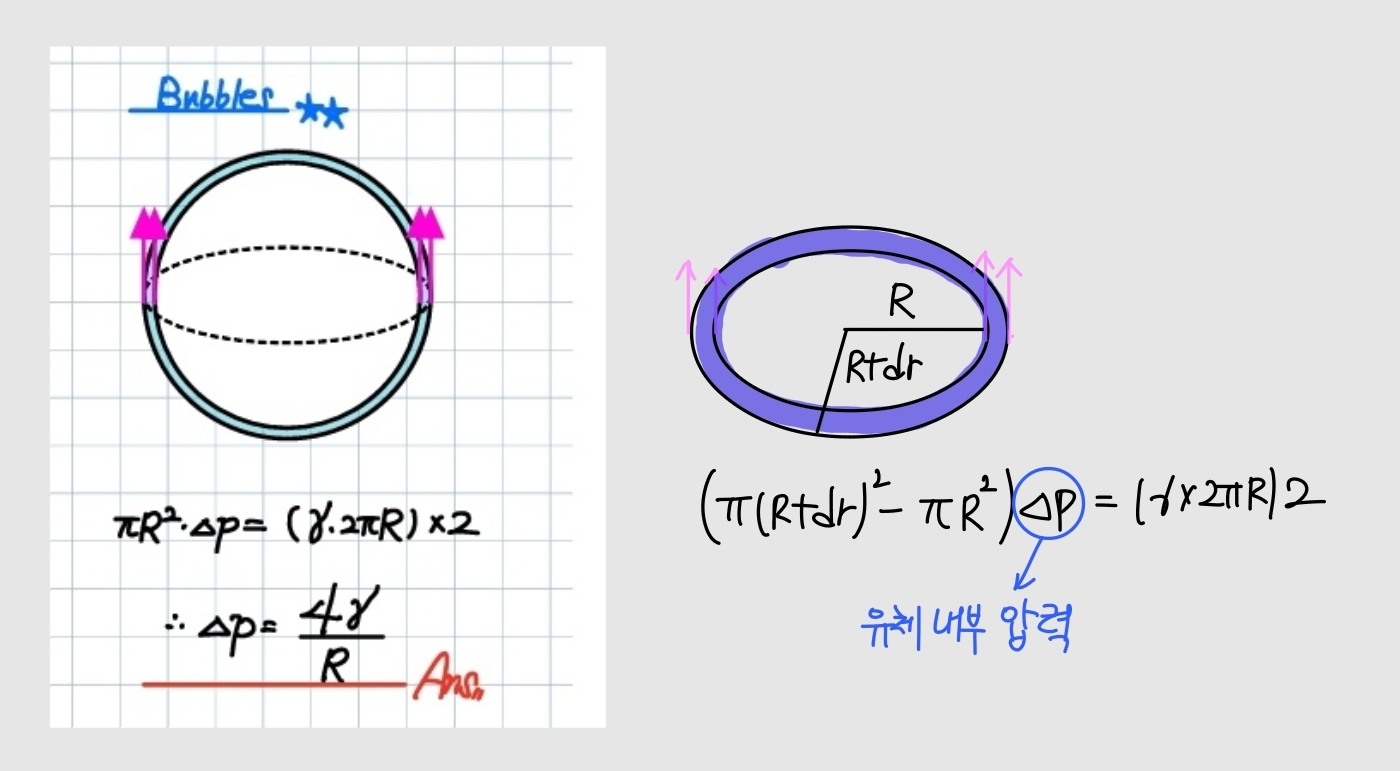 Bubbles ★★
πR²·ΔP = (γ·2πR)×2
∴ ΔP = 4γ/R
Ans.
R
R+dr
(π(R+dr)² - πR²)ΔP = (γ×2πR)2
유체 내부 압력